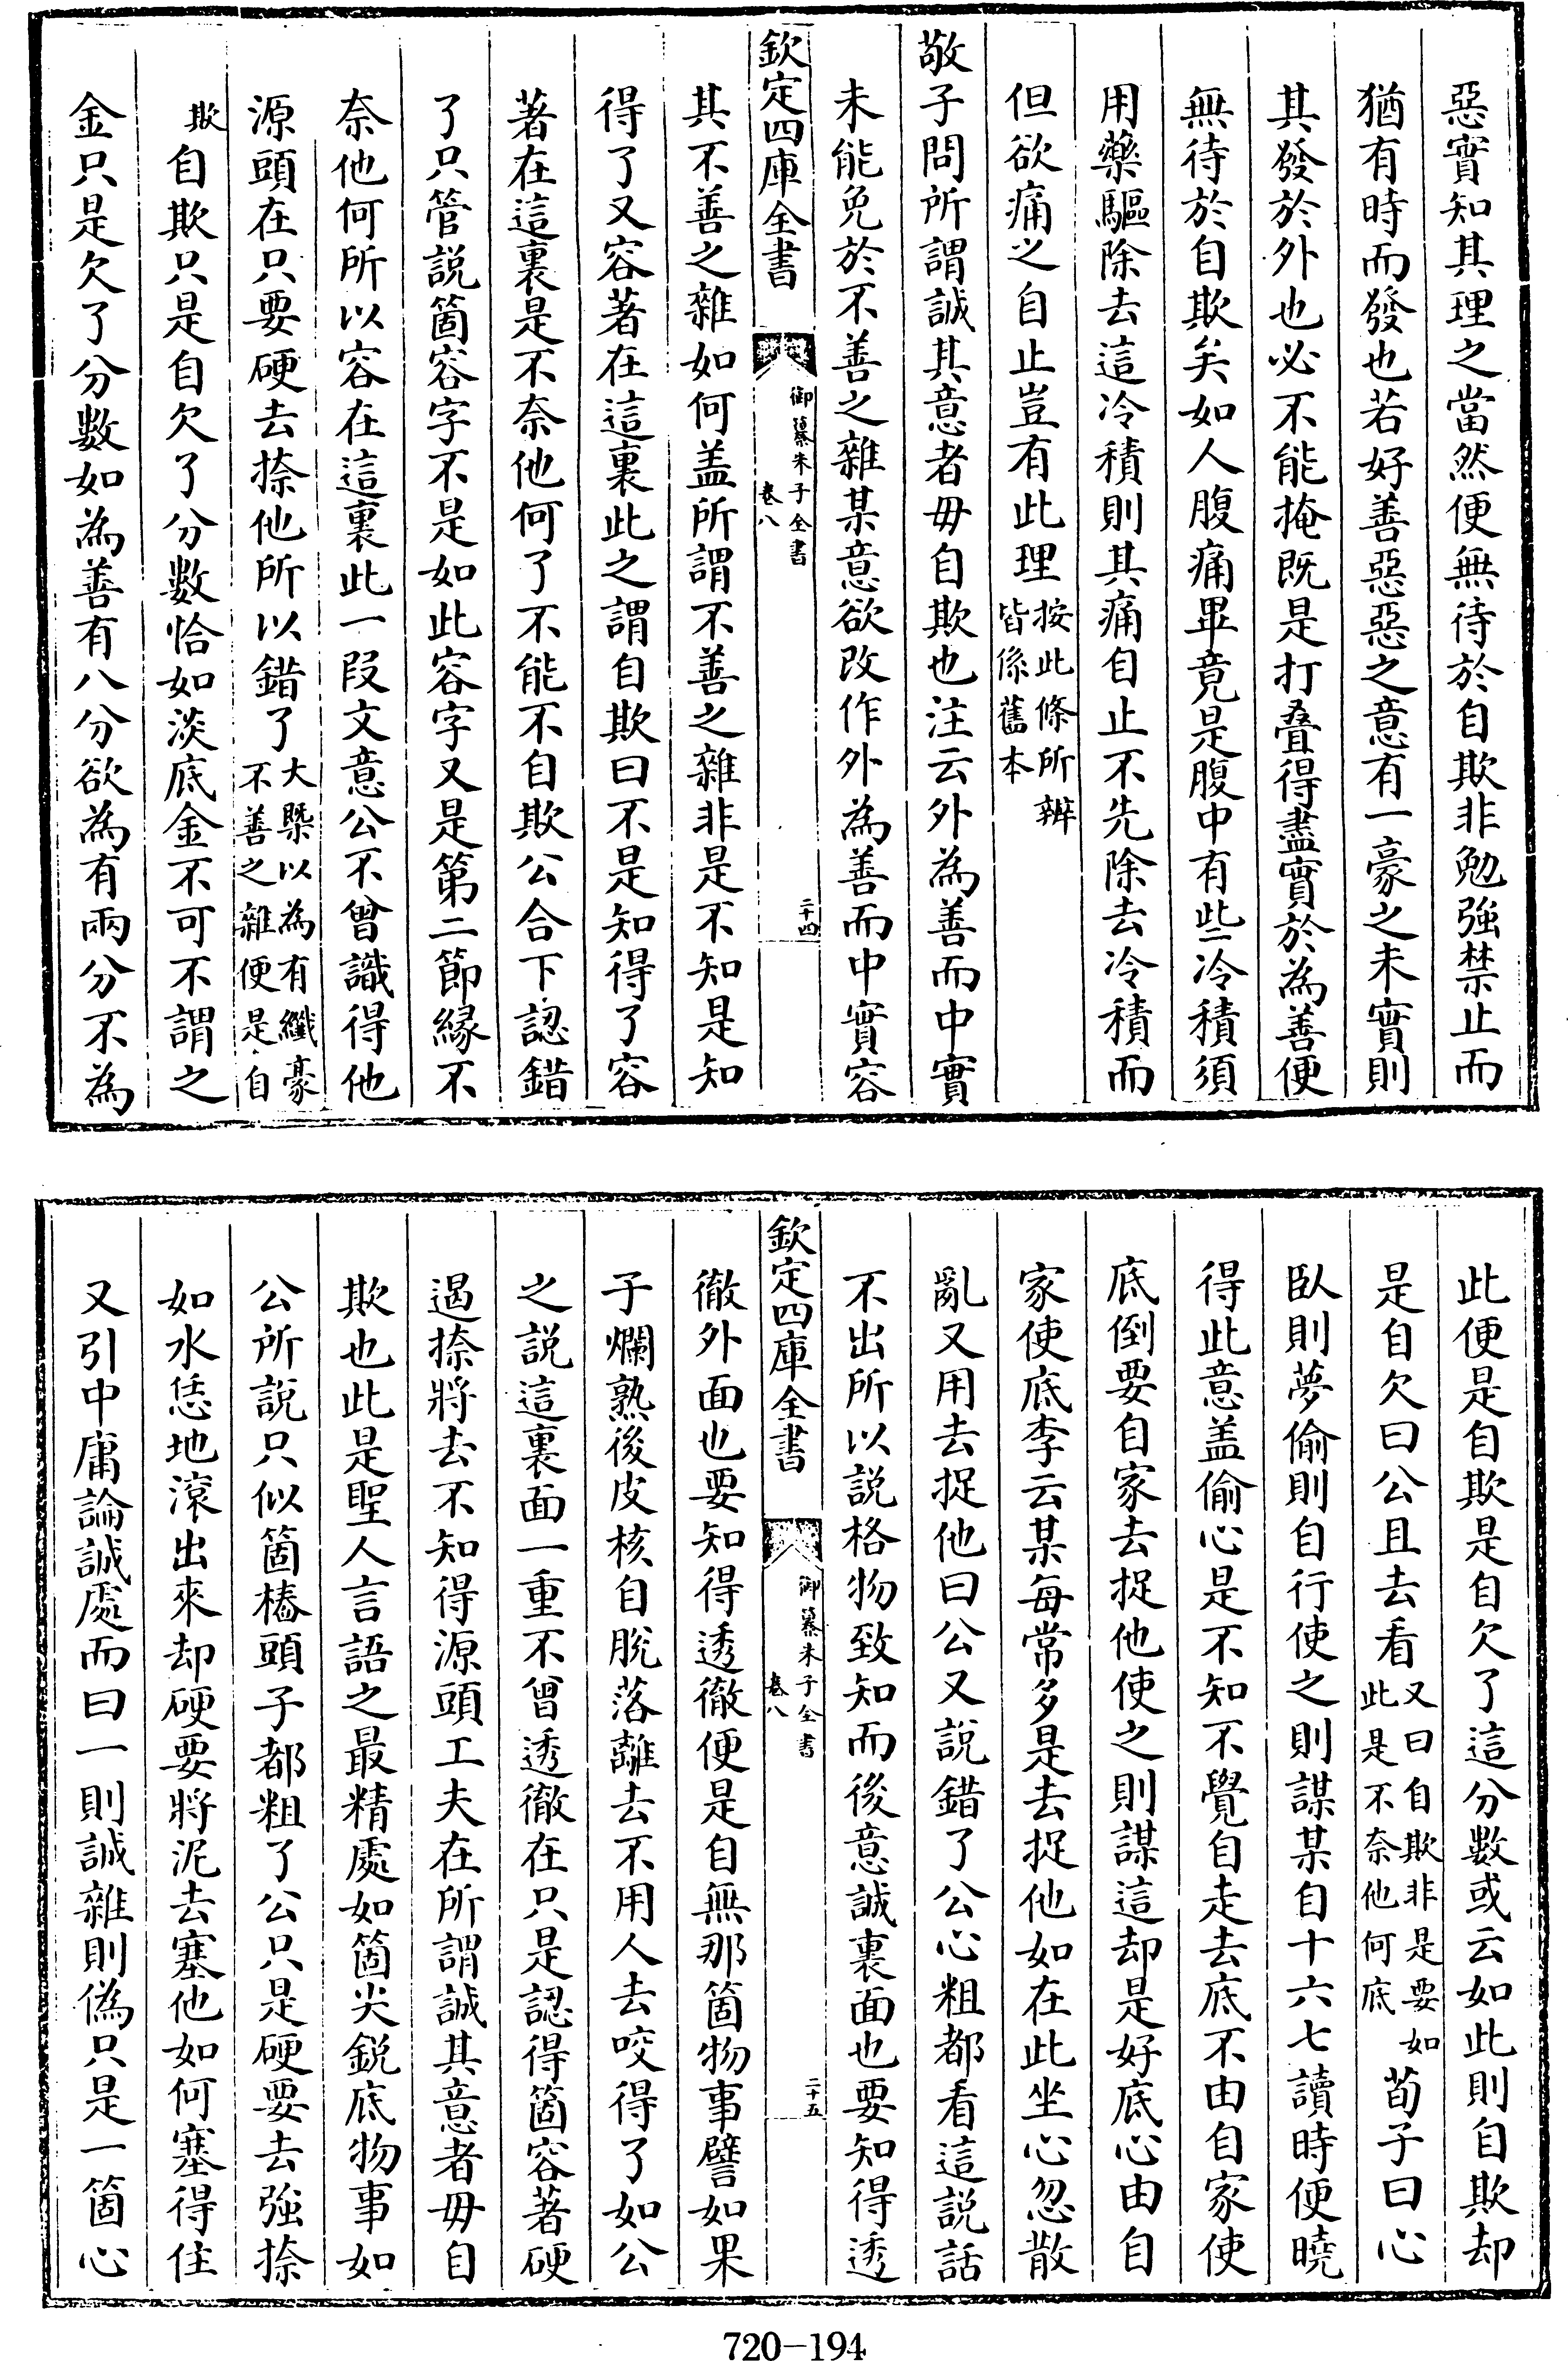 惡實知其理之當然便無待於自欺非勉強禁止而
猶有時而發也若好善惡惡之意有一豪之未實則
其發於外也必不能掩既是打叠得盡實於為善便
無待於自欺矣如人腹痛畢竟是腹中有些冷積須
用藥驅除去這冷積則其痛自止不先除去冷積而
但欲痛之自止豈有此理按此條所辨皆係舊本
敬子問所謂誠其意者毋自欺也注云外為善而中實
未能免於不善之雜某意欲改作外為善而中實容
欽定四庫全書
御纂朱子全書
卷八
二十四
其不善之雜如何盖所謂不善之雜非是不知是知
得了又容著在這裏此之謂自欺曰不是知得了容
著在這裏是不奈他何了不能不自欺公合下認錯
了只管説箇容字不是如此容字又是第二節緣不
奈他何所以容在這裏此一段文意公不曾識得他
源頭在只要硬去捺他所以錯了大槩以為有纖豪不善之雜便是自
欺自欺只是自欠了分數恰如淡底金不可不謂之
金只是欠了分數如為善有八分欲為有兩分不為
此便是自欺是自欠了這分數或云如此則自欺却
是自欠曰公且去看又曰自欺非是要如此是不奈他何底荀子曰心
臥則夢偷則自行使之則謀某自十六七讀時便曉
得此意盖偷心是不知不覺自走去底不由自家使
底倒要自家去捉他使之則謀這却是好底心由自
家使底李云某每常多是去捉他如在此坐心忽散
亂又用去捉他曰公又說錯了公心粗都看這説話
不出所以説格物致知而後意誠裏面也要知得透
欽定四庫全書
御纂朱子全書
卷八
二十五
徹外面也要知得透徹便是自無那箇物事譬如果
子爛熟後皮核自脫落離去不用人去咬得了如公
之説這裏面一重不曾透徹在只是認得箇容著硬
遏捺將去不知得源頭工夫在所謂誠其意者毋自
欺也此是聖人言語之最精處如箇尖鋭底物事如
公所説只似箇樁頭子都粗了公只是硬要去強捺
如水恁地滚出來却硬要將泥去塞他如何塞得住
又引中庸論誠處而曰一則誠雜則偽只是一箇心
720-194